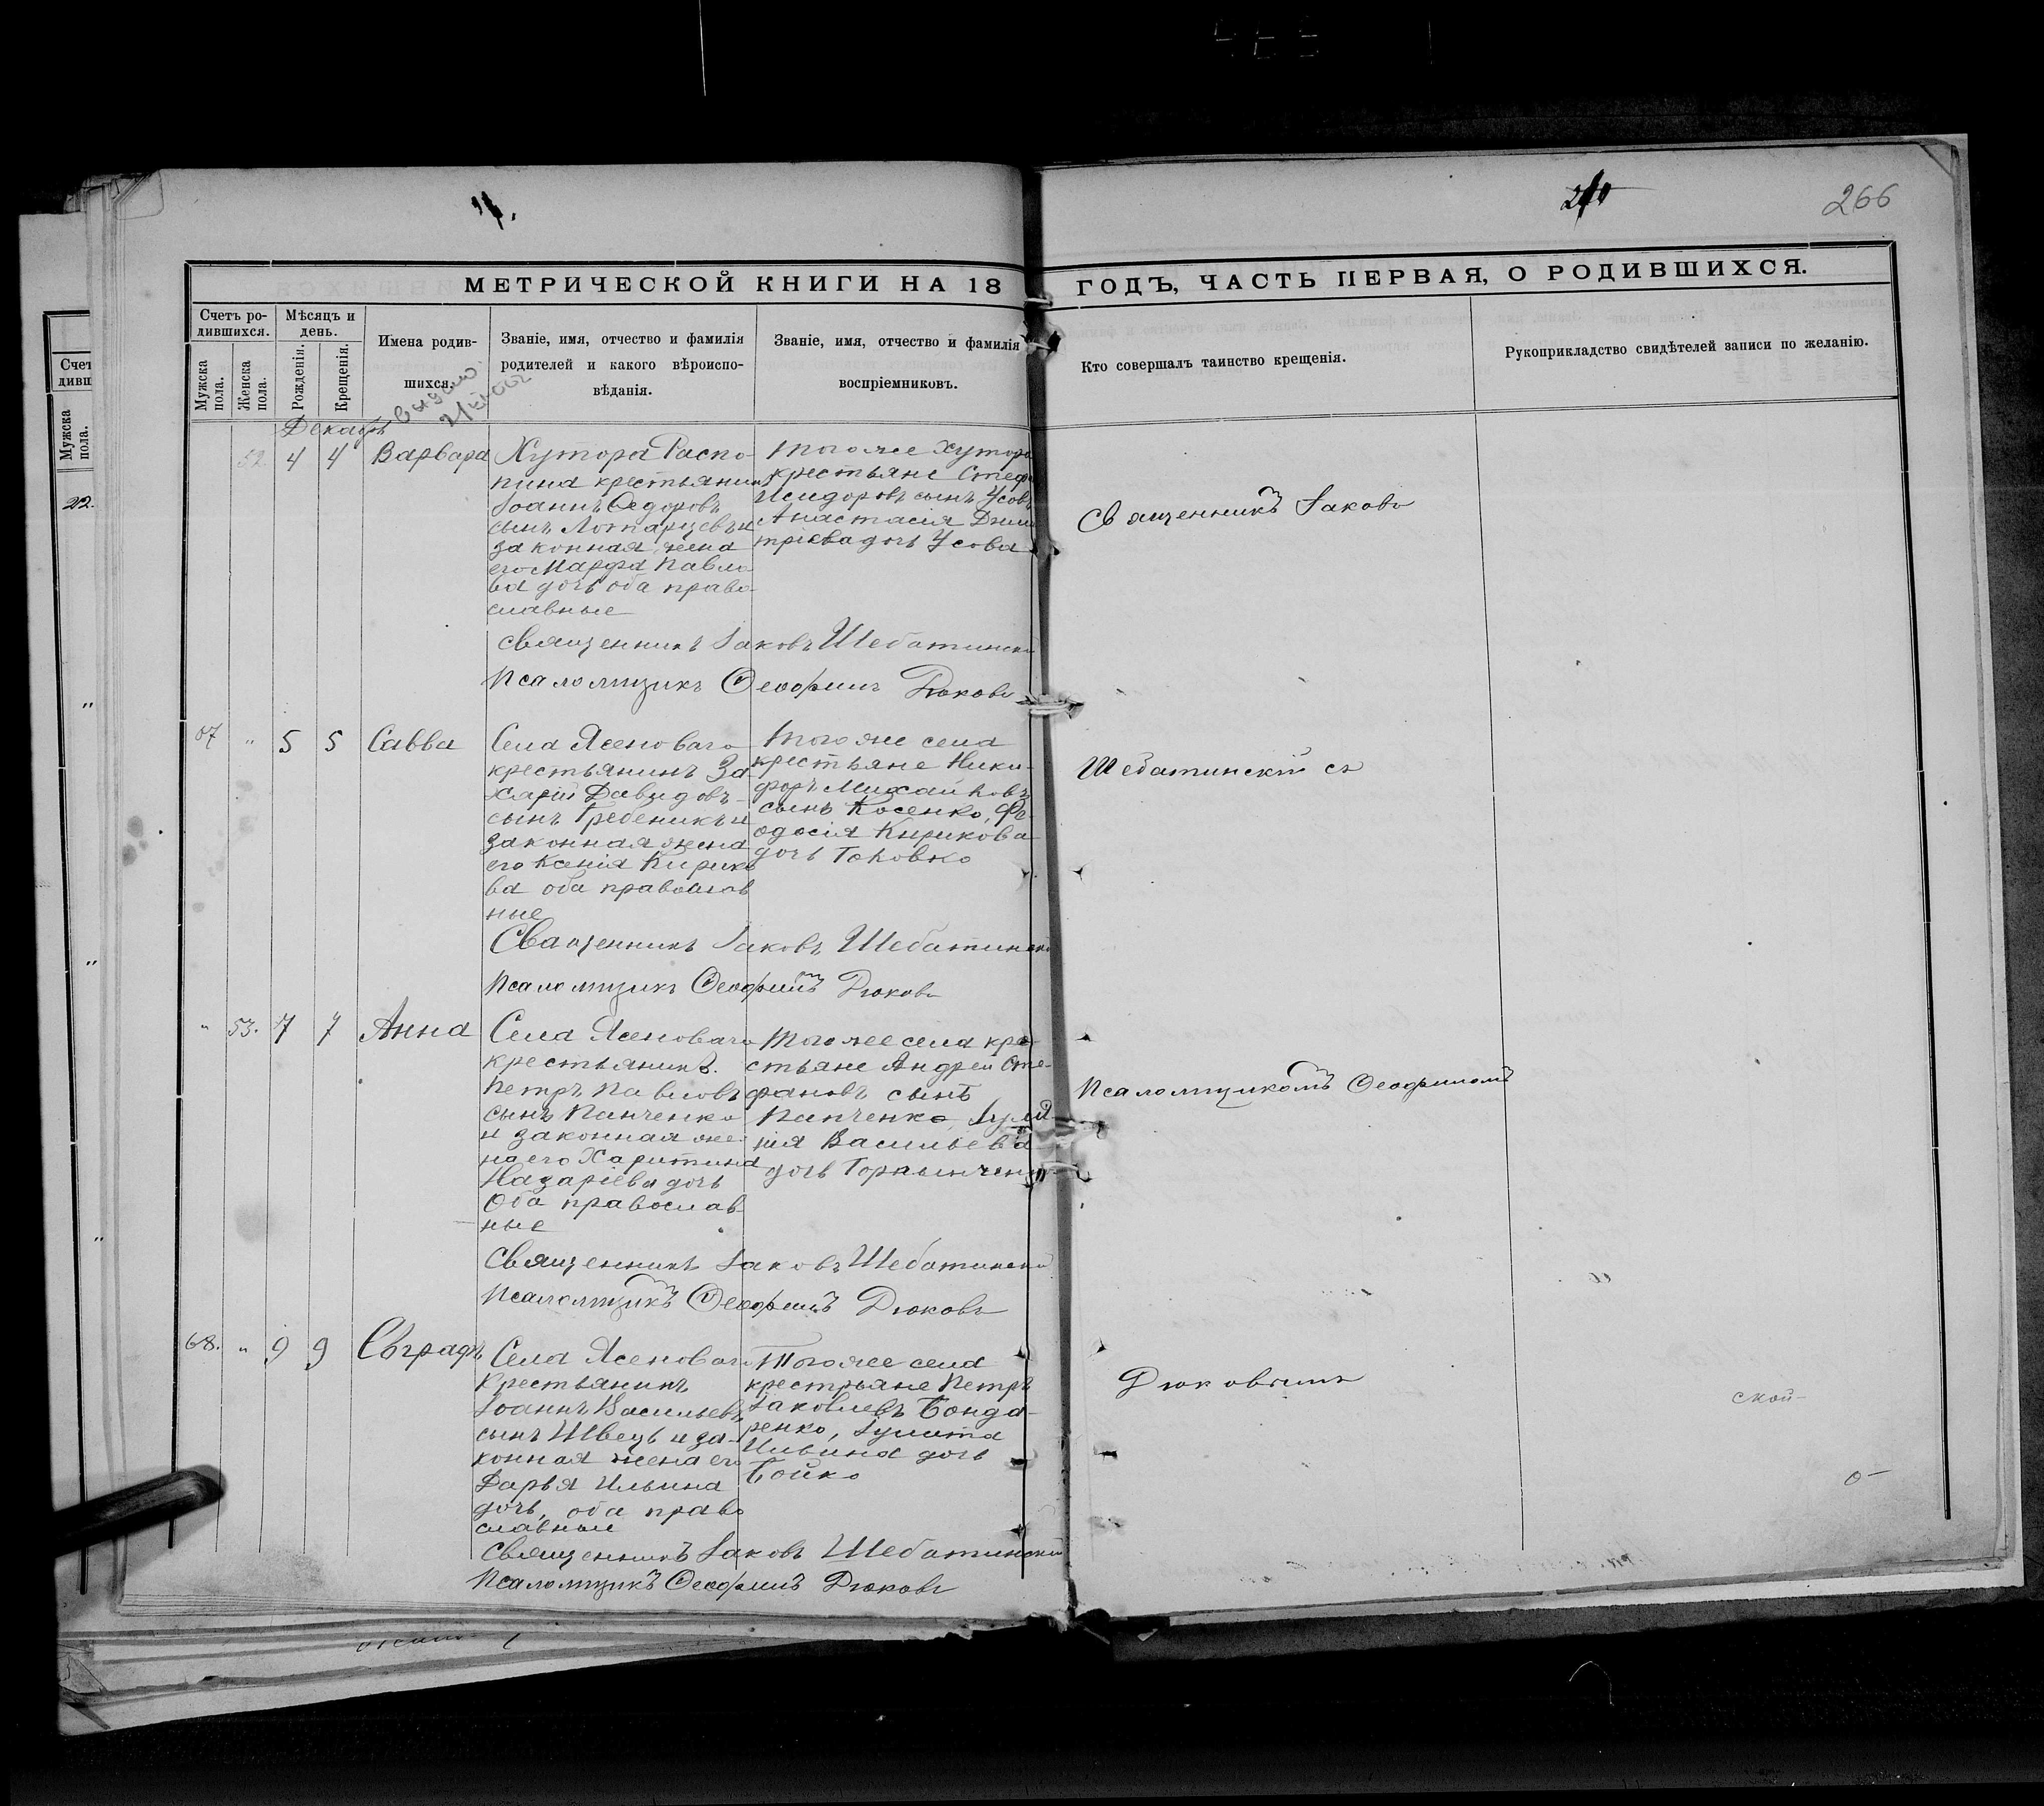 266
МЕТРИЧЕСКОЙ КНИГИ НА 18 ГОДЪ, ЧАСТЬ ПЕРВАЯ, О РОДИВШИХСЯ.
Счетъ ро-
дившихся.
Мужска
пола.
Женска
пола.
Мѣсяцъ и
день.
Рожденія.
Крещенія.
Имена родив-
шихся.
Званіе, имя, отчество и фамилія
родителей и какого вѣроиспо-
вѣданія.
Званіе, имя, отчество и фамилія
воспріемниковъ.
Кто совершалъ таинство крещенія.
Рукоприкладство свидѣтелей записи по желанію.
Счет
дивш
Мужска
пола.
22.
Декабрь
52. 4 4 Варвара
Хутора Распо-
пина крестьянинъ
Іоаннъ Ѳедоровъ
сынъ и
законная жена
его Марфа Павло
ва дочь оба право
славные
Того же Хутора
крестьяне Стеф
Исидоровъ сынъ Усовъ
Анастасія Дими
тріева дочь Усова
Священникъ Іаковъ
Священникъ Іаковъ Шебатински
Псаломщикъ Ѳеофилъ Дюковъ
67 " 5 5 Савва
Села Ясеноваго
крестьянинъ За
харій Давидовъ
сынъ Гребеникъ и
законная жена
его Ксенія Кирико
ва оба православ
ные
Того же села
крестьяне Ники-
форъ Михайловъ
сынъ Косенко, Ѳе
одосія Кирикова
дочь Головко
Шебатинскій съ
Священникъ Іаковъ Шебатински
Псаломщикъ Ѳеофилъ Дюковъ
" 53. 7 7 Анна
Села Ясеноваго
крестьянинъ
Петръ Павловъ
сынъ Панченко
и законная же
на его Харитина
Назаріева дочь
Оба православ
ные
Того же села кре
стьяне Андрей Сте-
фановъ сынъ
Панченко, Іулі
нія Васильева
дочь
Псаломщикомъ Ѳеофиломъ
Священникъ Іаковъ Шебатински
Псаломщикъ Ѳеофилъ Дюковъ
68. " 9 9 Евграфъ
Села Ясеноваго
Крестьянинъ
Іоаннъ Васильевъ
сынъ Швецъ и за-
конная жена его
Дарья Ильина
дочь, оба право
славные
Того же села
крестьяне Петръ
Іаковлевъ Бонда-
ренко, Іулита
Ильина дочь
Бойко
Дюковымъ
ской-
Священникъ Іаковъ Шебатински
Псаломщикъ Ѳеофилъ Дюковъ